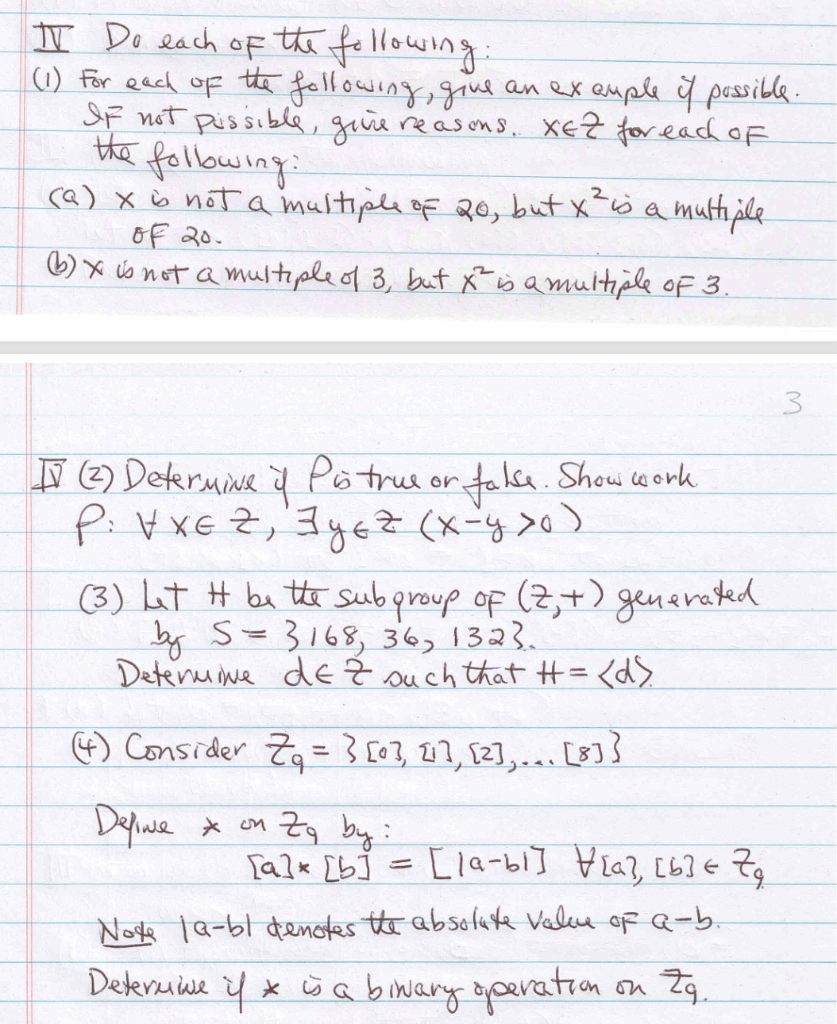 IV Do each of the following:
(1) For each of the following, give an example if possible.
If not possible, give reasons. x∈Z for each of
the following:
(a) x is not a multiple of 20, but x² is a multiple
of 20.
(b) x is not a multiple of 3, but x² is a multiple of 3.
3
IV (2) Determine if P is true or false. Show work
P: ∀ x∈ Z, ∃ y∈Z (x-y >0)
(3) Let H be the subgroup of (Z,+) generated
by S = {168, 36, 132}.
Determine d∈ Z such that H = <d>.
(4) Consider Z₉ = {[0], [1], [2],... [8]}
Define * on Z₉ by:
[a]* [b] = [|a-b|] ∀[a], [b]∈ Z₉
Note |a-b| denotes the absolute value of a-b.
Determine if * is a binary operation on Z₉.